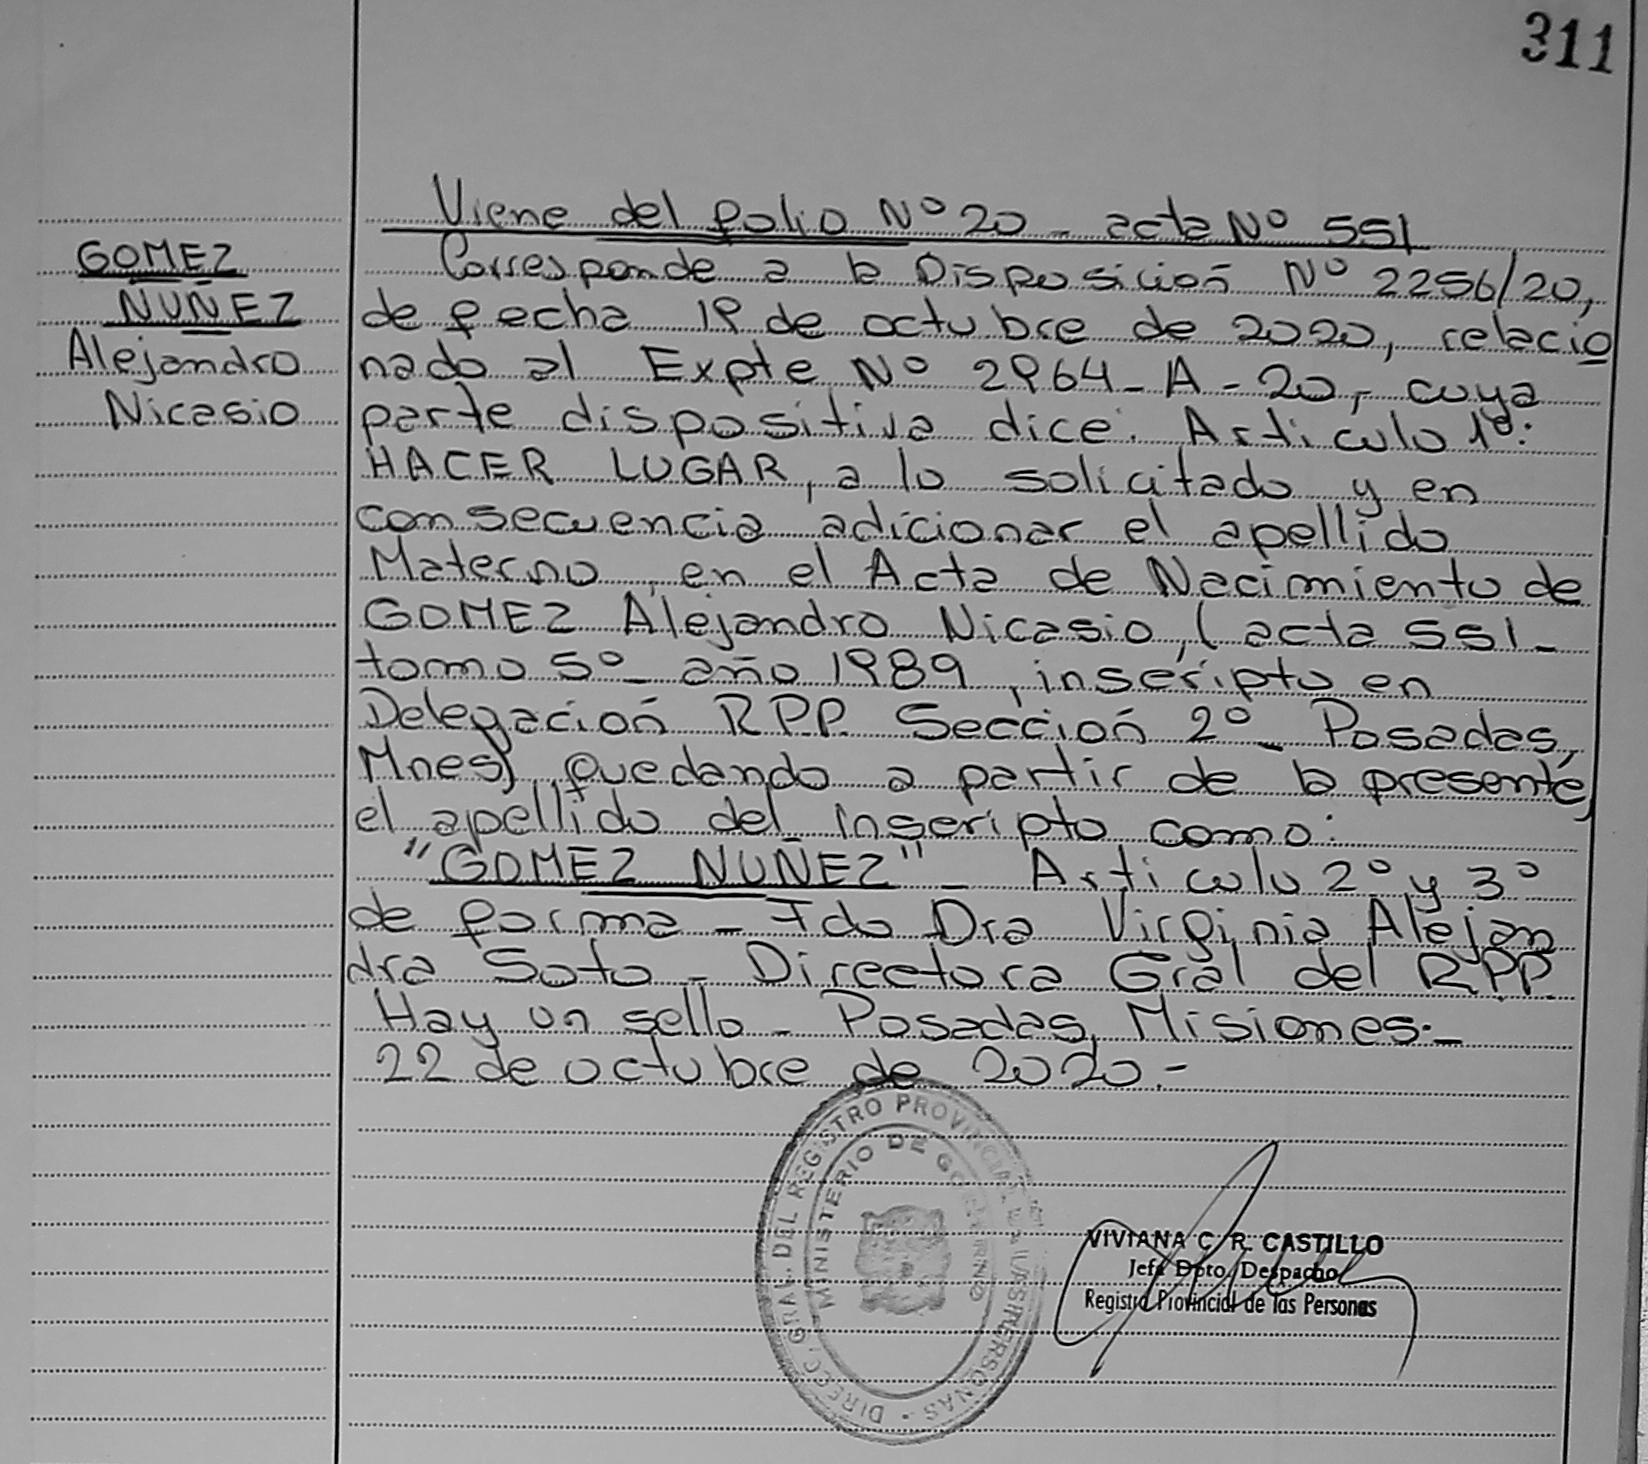 311
Viene del folio Nº 20 - acta Nº 551
GOMEZ
NUÑEZ
Alejandro
Nicasio
Corresponde a la Disposición Nº 2256/20,
de fecha 19 de octubre de 2020, relacio
nado al Expte Nº 2964-A-20,- cuya
parte dispositiva dice: Articulo 1º:
HACER LUGAR, a lo solicitado y en
consecuencia adicionar el apellido
Materno, en el Acta de Nacimiento de
GOMEZ Alejandro Nicasio, (acta 551-
tomo 5º- año 1989, inscripto en
Delegación R.P.P. Sección 2º- Posadas,
Mnes), quedando a partir de la presente,
el apellido del inscripto como:
"GOMEZ NUÑEZ" - Articulo 2º y 3º
de forma - Fdo Dra Virginia Alejan
dra Soto - Directora Gral del R.P.P.
Hay un sello - Posadas, Misiones.-
22 de octubre de 2020.-
DIREC. GRAL. DEL REGISTRO PROVINCIAL DE LAS PERSONAS
MINISTERIO DE GOBIERNO
VIVIANA C. R. CASTILLO
Jefa Dpto. Despacho
Registro Provincial de las Personas